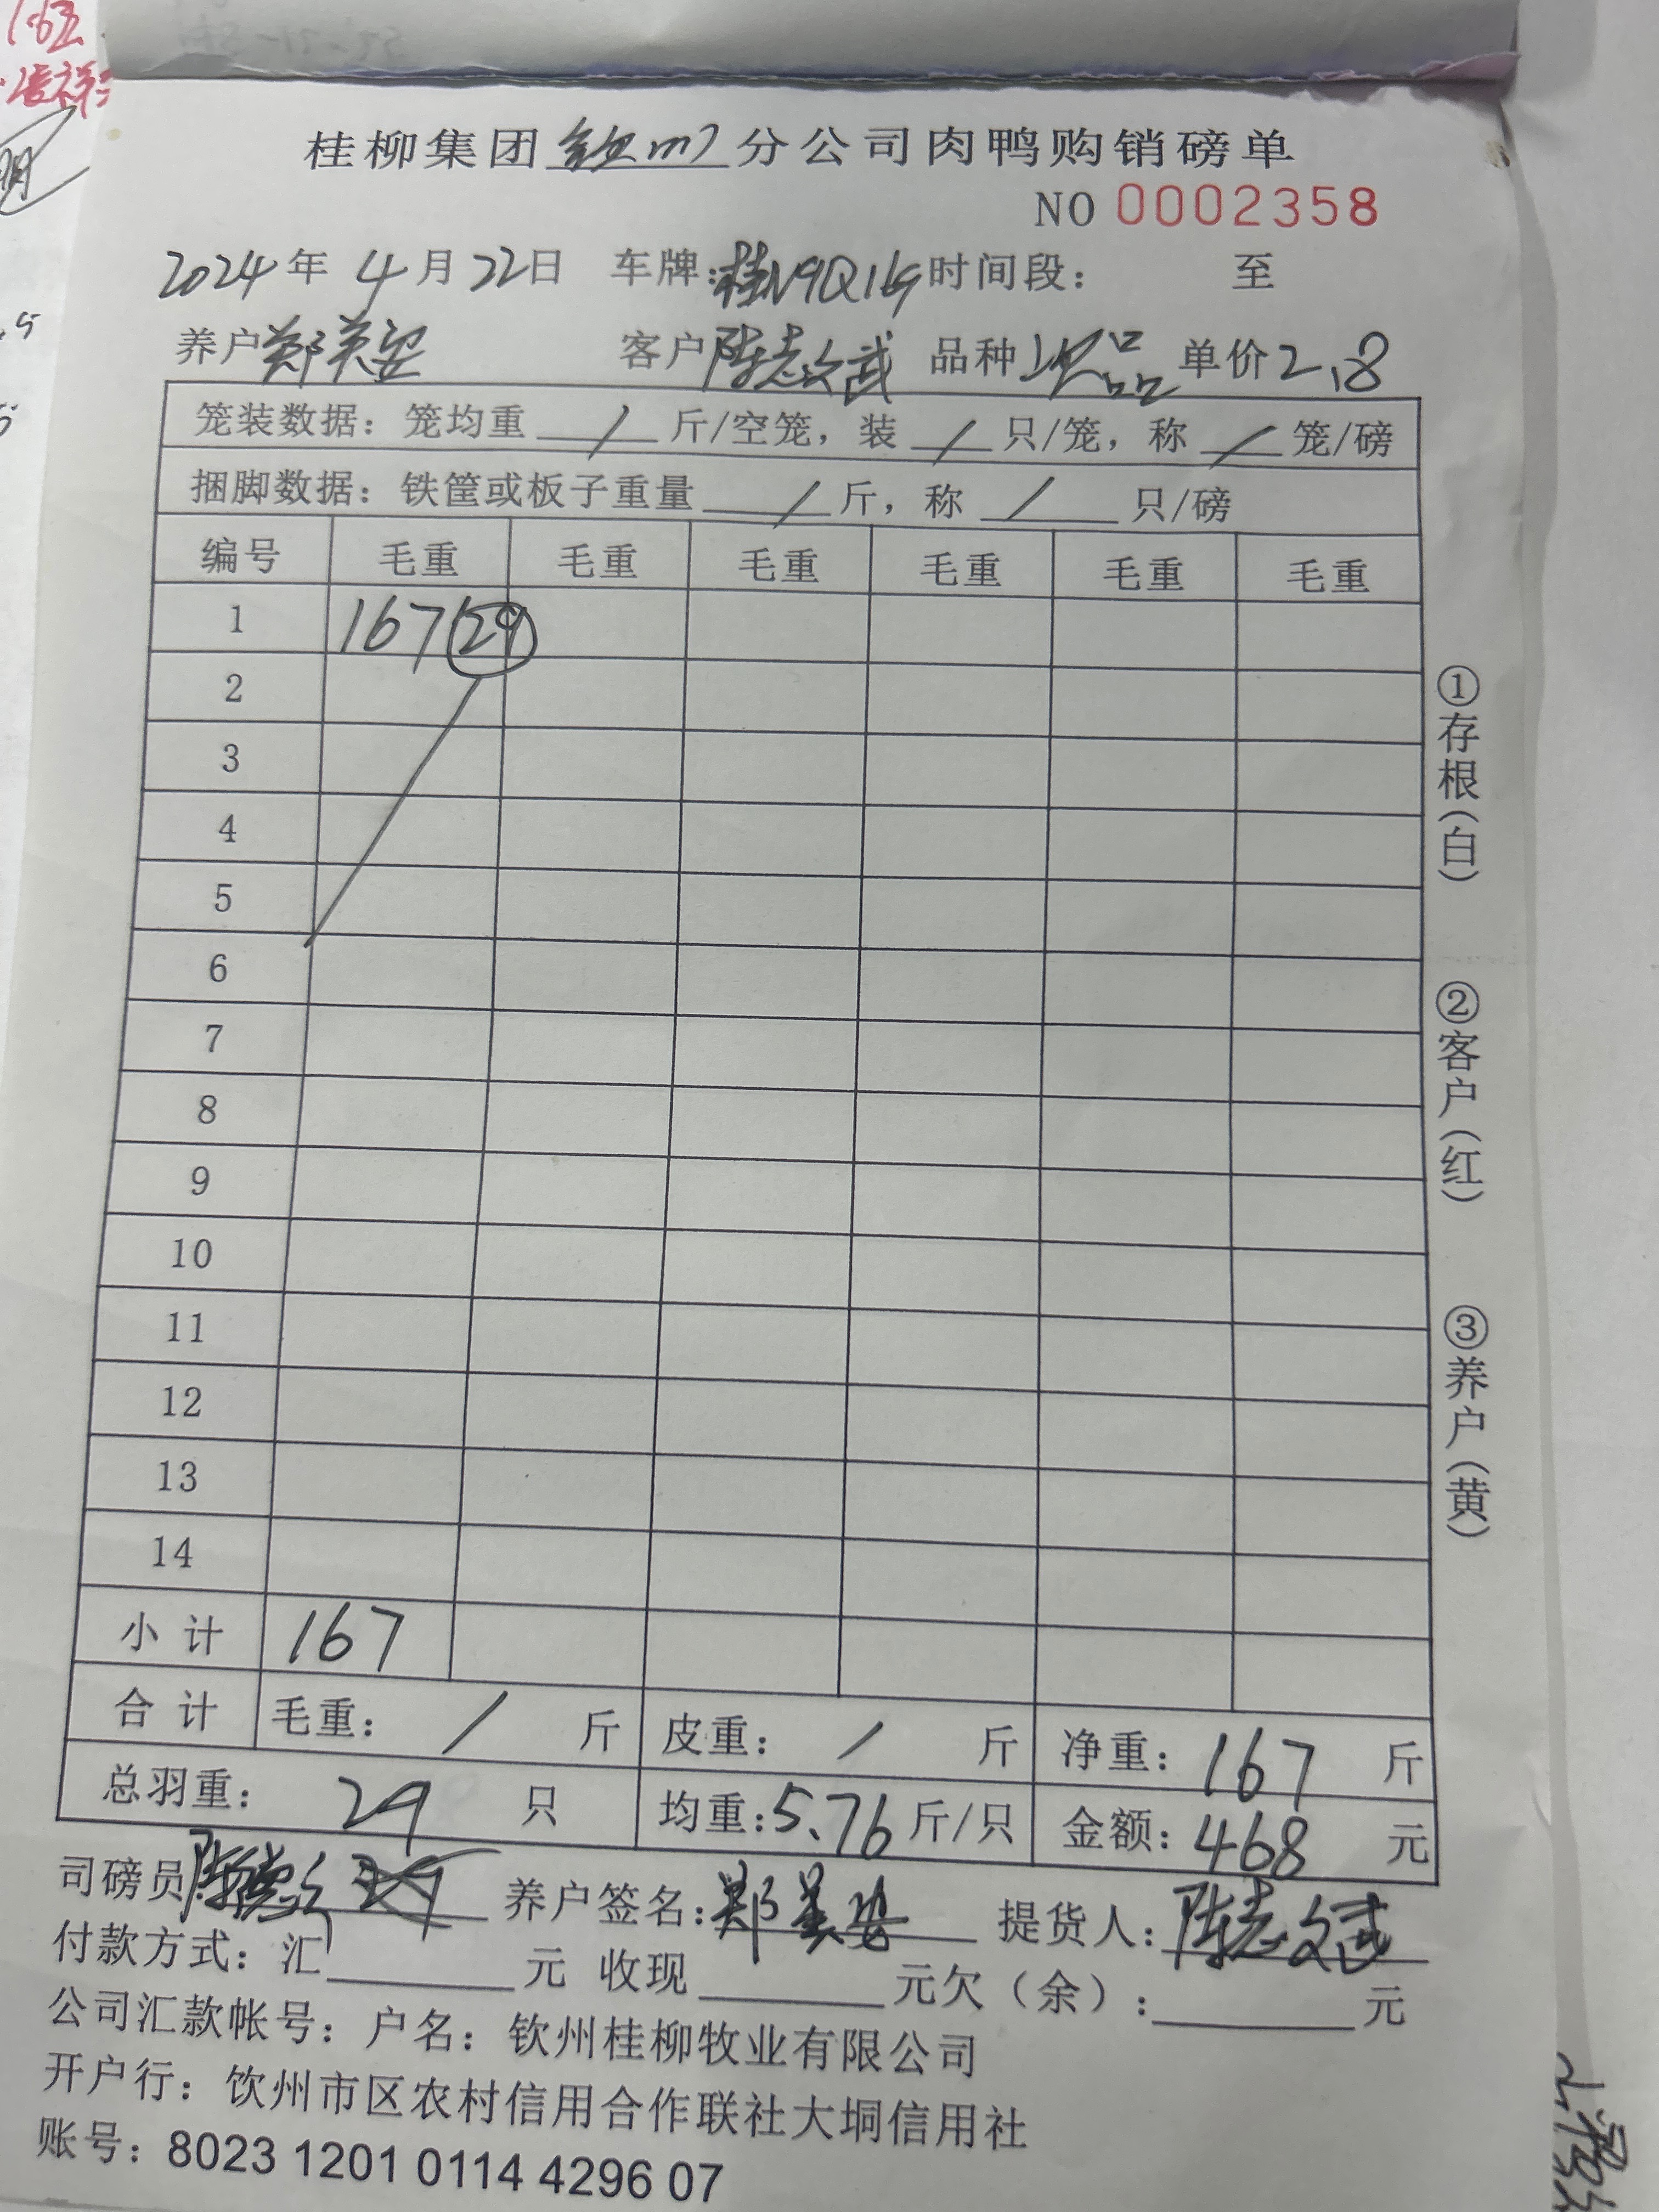 桂柳集团钦州分公司肉鸭购销磅单
NO 0002358
2024年 4月22日 车牌:桂N9Q169 时间段: 至
养户 郑美安 客户 陈志斌 品种 次品 单价 2.8
笼装数据: 笼均重 / 斤/空笼, 装 / 只/笼, 称 / 笼/磅
捆脚数据: 铁筐或板子重量 / 斤, 称 / 只/磅
编号 毛重 毛重 毛重 毛重 毛重 毛重
1 167 29
2
3
4
5
6
7
8
9
10
11
12
13
14
小计 167
合计 毛重: / 斤 皮重: / 斤 净重: 167 斤
总羽重: 29 只 均重: 5.76 斤/只 金额: 468 元
司磅员: 养户签名: 郑美安 提货人: 陈志斌
付款方式: 汇 元 收现 元欠(余): 元
公司汇款帐号: 户名: 钦州桂柳牧业有限公司
开户行: 饮州市区农村信用合作联社大垌信用社
账号: 8023 1201 0114 4296 07
①存根(白)
②客户(红)
③养户(黄)